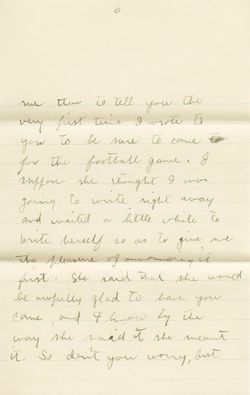 6
me than to tell you the
very first time I wrote to
you to be sure to come
for the football game. I
suppose she thought I was
going to write right away
and waited a little while to
write herself so as to give me
the pleasure of announcing it
first. She said that she would
be awfully glad to have you
come, and I know by the
way she said it she meant
it. So don't you worry, but